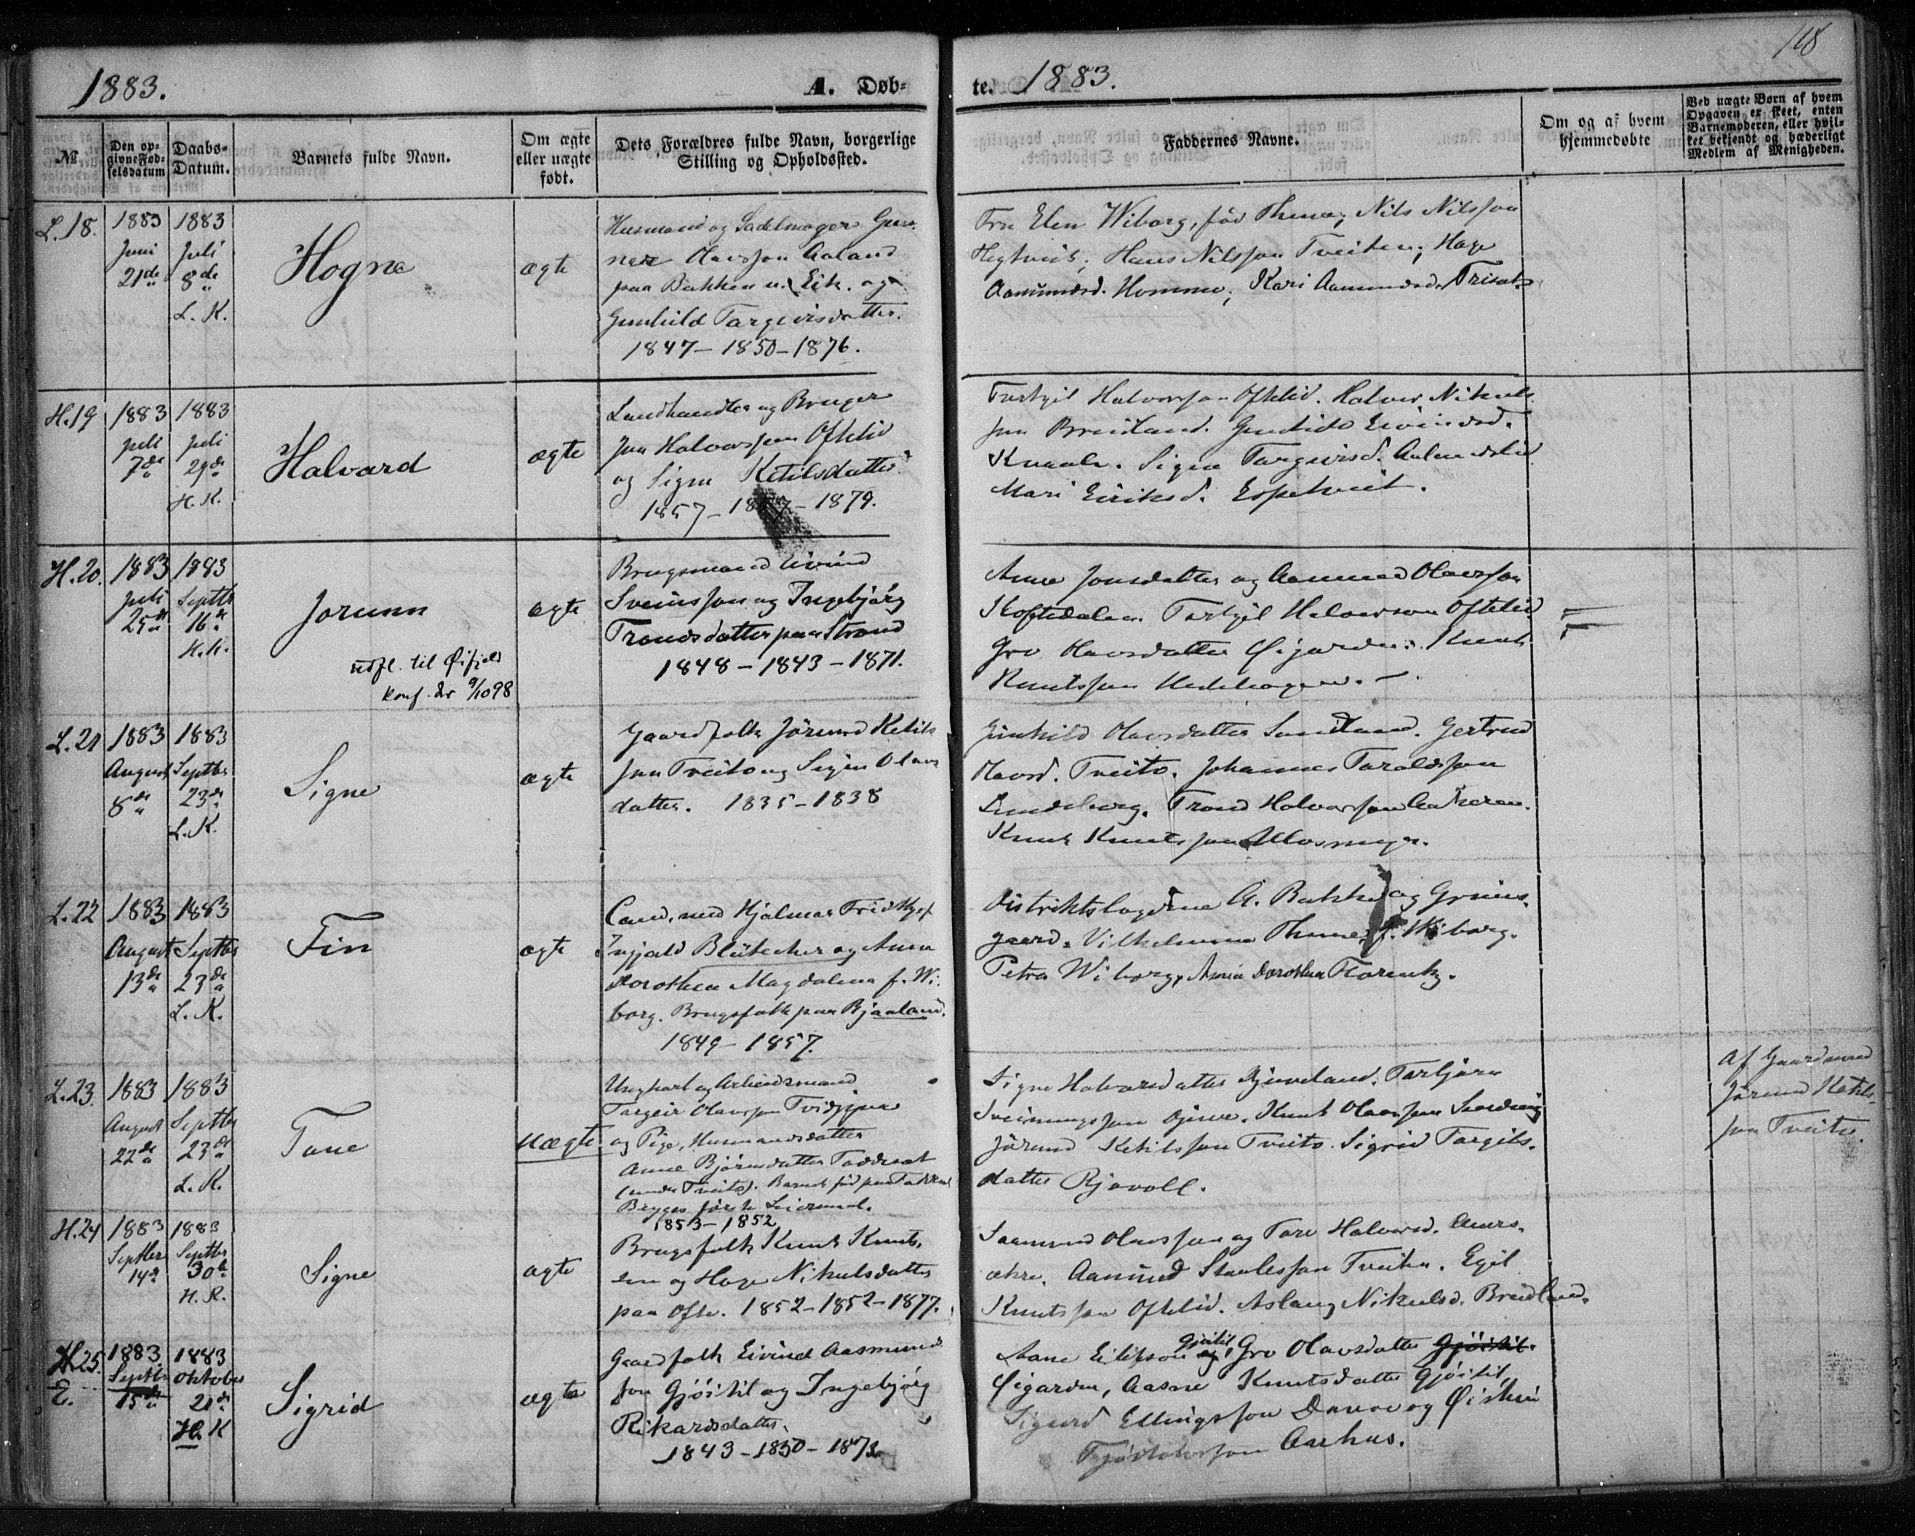 118
1883.
A. Døb-
te. 1883.
No.
Den op-
givne Fød-
selsdatum
Daabs-
Datum.
Barnets fulde Navn.
Om ægte
eller uægte
født.
Dets Forældres fulde Navn, borgerlige
Stilling og Opholdssted.
Faddernes Navne.
Om og af hvem
hjemmedøbte
Ved uægte Børn af hvem
Opgaven er skeet, enten
Barnemoderen, eller hvil-
ket bekjendt og hæderligt
Medlem af Menigheden.
L. 18.
1883
Juni
21de
1883
Juli
8de
L. K.
Hogne
ægte
Husmand og Sadelmager Gun-
nar Olavsson Aaland
paa Bakken u. Eik. og
Gunhild Targeirsdatter.
1847 - 1850 - 1876.
Fru Elen Wiborg, fød Thune, Nils Nilsson
Hegtveit, Hans Nilsson Tveiten, Hage
Aamundsd. Hommo, Kari Aamundsd.
H. 19
1883
Juli
7de
1883
Juli
29de
H. K.
Halvard
ægte
Landhandler og Bruger
Jon Halvorsson Oftelid
og Signe Ketilsdatter
1857 - - 1879.
Tarkjil Halvorsson Oftelid. Halvor Nikuls
son Breiland. Gunhild Eivindsd.
Signe Targeirsd.
Mari Eiriksd. Espetveit.
H. 20.
1883
Juli
25de
1883
Septbr
16de
H. K.
Jorunn
udfl. til Øifjeld
konf. der 9/10 98
ægte
Brugsmand Eivind
Sveinsson og Ingebjørg
Trondsdatter paa Strand
1848 - 1843 - 1871.
Anne Jonsdatter og Aamund Olavsson
Tarkjil Halvorsson Oftelid
Gro Olavsdatter Øigarden. Knut
Knutsson
L. 21
1883
August
8de
1883
Septbr
23de
L. K.
Signe
ægte
Gaardfolk Jørund Ketils
son Tveito og Signe Olavs
datter. 1835 - 1838
Gunhild Olavsdatter Gertrud
Olavsd. Tveito. Johannes Taraldsson
Lundeberg. Trond Halvorsson
Knut Knutsson
L. 22
1883
August
13de
1883
Septbr
23de
L. K.
Fin
ægte
Cand. med Hjalmar Fridthjof
Ingjald Blütecher og Anna
Dorothea Magdalena f. Wi-
borg. Brugsfolk paa Bjaaland.
1849 - 1857.
Distriktslægerne A. Bakke og Grøns-
gaard. Vilhelmina Thune, f. Wiborg.
Petra Wiborg, Anna Dorothea Florentz.
L. 23.
1883
August
22de
1883
Septbr
23de
L. K.
Tone
uægte
Ungkarl og Arbeidsmand
Targeir Olavsson
og Pige, Husmandsdatter
Anne Bjørnsdatter
under Tveito. Barnet fød paa
Begges første Leiermaal.
1853 - 1852
Signe Halvorsdatter Tarbjørn
Sveinungsson Knut Olavsson
Jørund Ketilsson Tveito. Sigrid Targits-
datter Rjavoll.
Af Gaardmand
Jørund Ketils-
son Tveito.
H. 24
1883
Septbr
14de
1883
Septbr
30te
H. K.
Signe
ægte
Brugsfolk Knut Knuts
sen og Hage Nikulsdatter
paa Ofte. 1852 - 1852 - 1877.
Saamund Olavsson og Tore Halvorsd.
Aamund Staalesson Tveiten. Egil
Knutsson Oftelid. Aslaug Nikulsd. Breidland.
H. 25.
E.
1883
Septbr
15de
1883
Oktober
21de
H. K
Sigrid
ægte
Gaardfolk Eivind Aasmund
son Gjøitil og Ingebjørg
Rikardsdatter.
1843 - 1850 - 1872
Aane Eilifsson Gjøitil, og Gro Olavsdatter Gjøitil.
Øigarden, Aasne Knutsdatter Gjøitil,
Sigurd Ellingsson og Øistein
Aarhus.